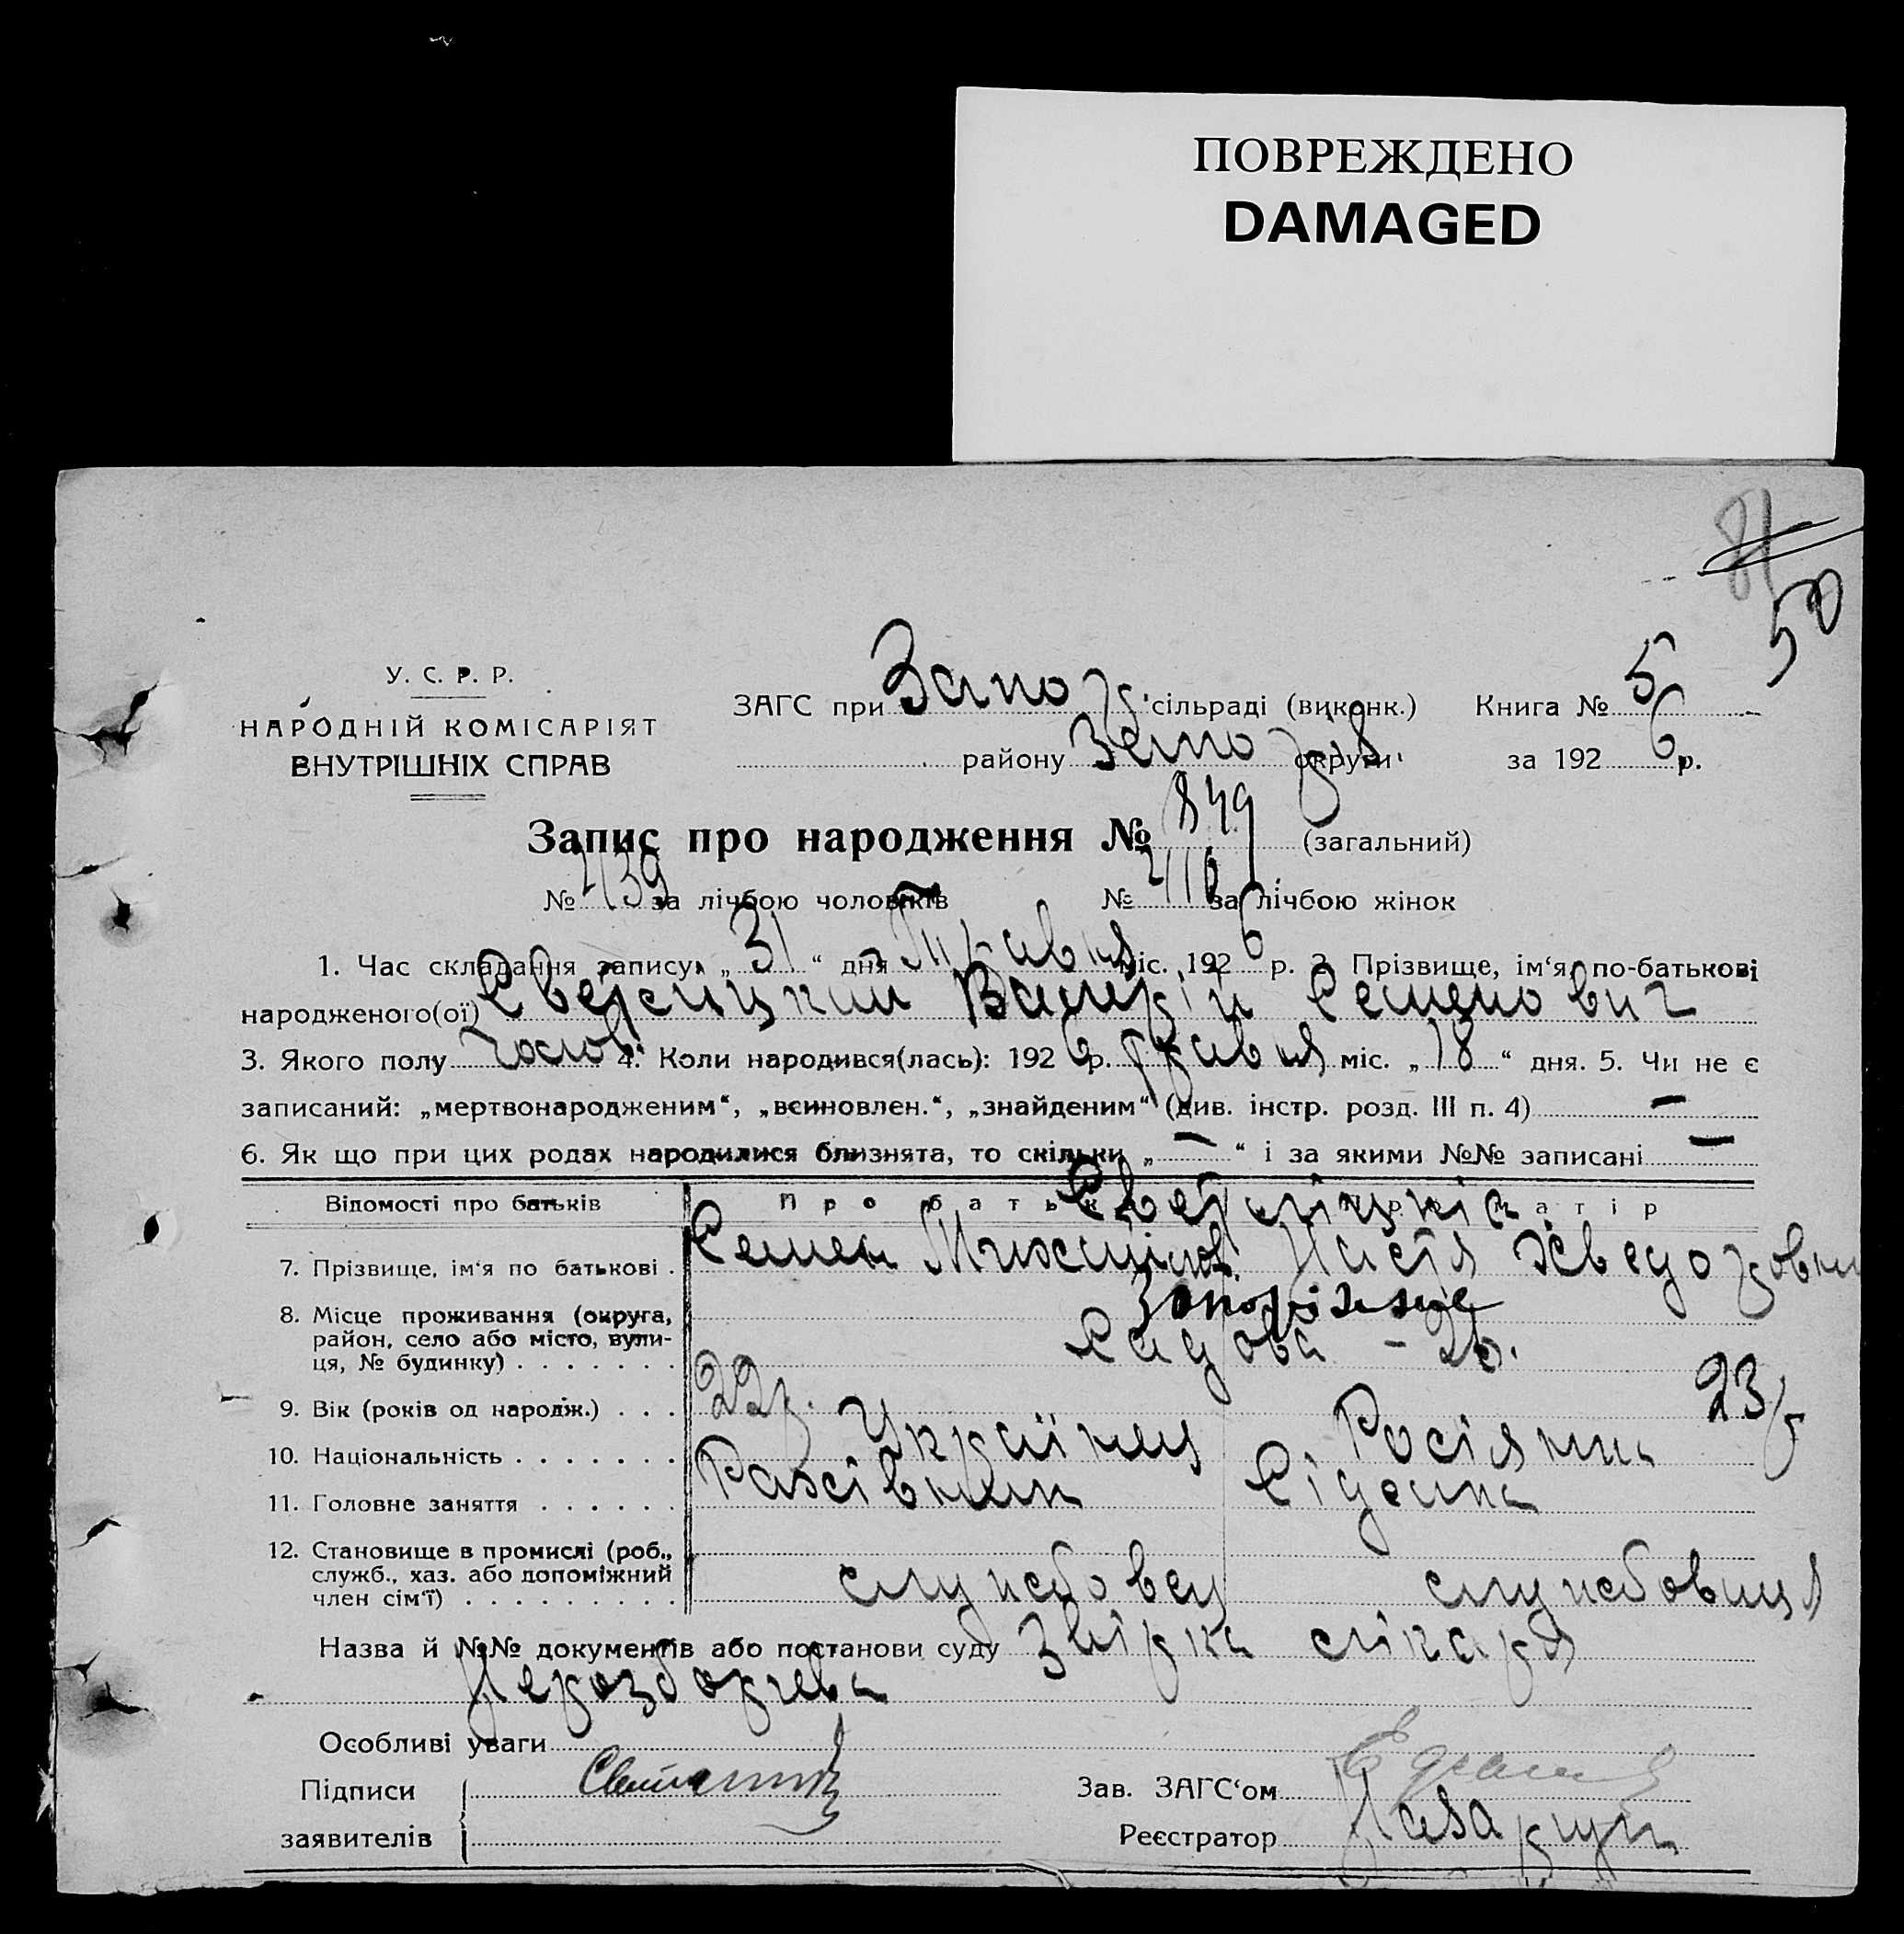 ПОВРЕЖДЕНО
DAMAGED
81
50
У. С. Р. Р.
НАРОДНІЙ КОМІСАРІЯТ
ВНУТРІШНІХ СПРАВ
ЗАГС при Запор. сільраді (виконк.) Книга № 5
району Запор. округи за 192 6 р.
Запис про народження № 849 (загальний)
№ 439 за лічбою чоловіків № 410 за лічбою жінок
1. Час складання запису „ 31 “ дня Травня міс. 192 6 р. 2. Прізвище, ім‘я, по-батькові
народженого(ої) Валерій Семенович
3. Якого полу чолов. 4. Коли народився(лась): 192 6 р. травня міс. „ 18 “ дня. 5. Чи не є
записаний: „мертвонародженим“, „всиновлен.“, „знайденим“ (див. інстр. розд. III п. 4) —
6. Як що при цих родах народилися близнята, то скільки „ — “ і за якими №№ записані —
Відомості про батьків Про батька Про матір
7. Прізвище, ім‘я по батькові . Семен Михайлов. Настя Хведоровна
8. Місце проживання (округа, район, село або місто, вулиця, № будинку) . . . . . . . Запоріжжє
Садова - 26.
9. Вік (років од народж.) . . . 22 р. 23 р
10. Національність . . . . . . . Українец Росіянка
11. Головне заняття . . . . . . Рахівник Сіделка
12. Становище в промислі (роб., служб., хаз. або допоміжний член сім‘ї) . . . . . . . . . службовец службовиця
Назва й №№ документів або постанови суду Звірка лікаря
Нерозборчева
Особливі уваги
Підписи
заявителів
Зав. ЗАГС‘ом
Реєстратор